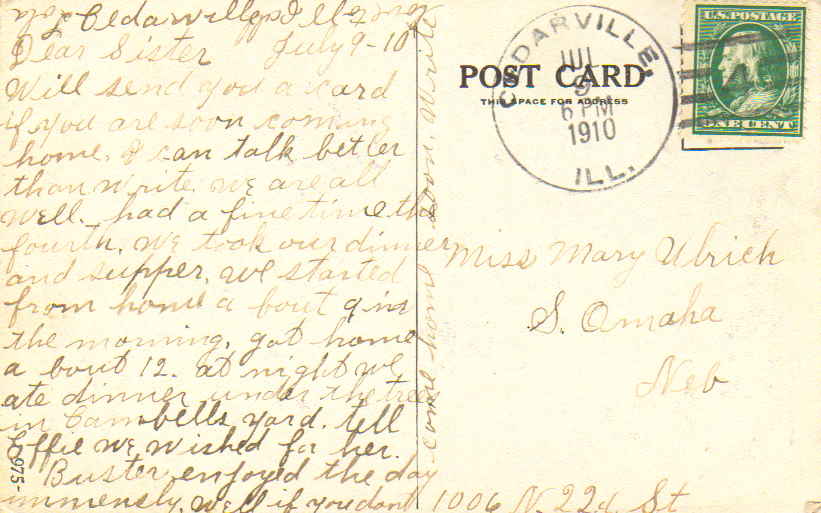 Cedarville Ill
Dear Sister July 9-10
Will send you a card
if you are soon coming
home. I can talk better
than write. we are all
well. had a fine time the
fourth. We took our dinner
and supper. we started
from home a bout 9 in
the morning, got home
a bout 12. at night we
ate dinner under the trees
in Cambells yard. tell
Effie we wished for her.
Buster enjoyed the day
immensely. Well if you dont
come home soon. write
Lola
975-
POST CARD
THIS SPACE FOR ADDRESS
CEDARVILLE,
JUL
9
6 PM
1910
ILL.
U.S. POSTAGE
ONE CENT
Miss Mary Ulrich
S. Omaha
Neb
1006 N. 22d St